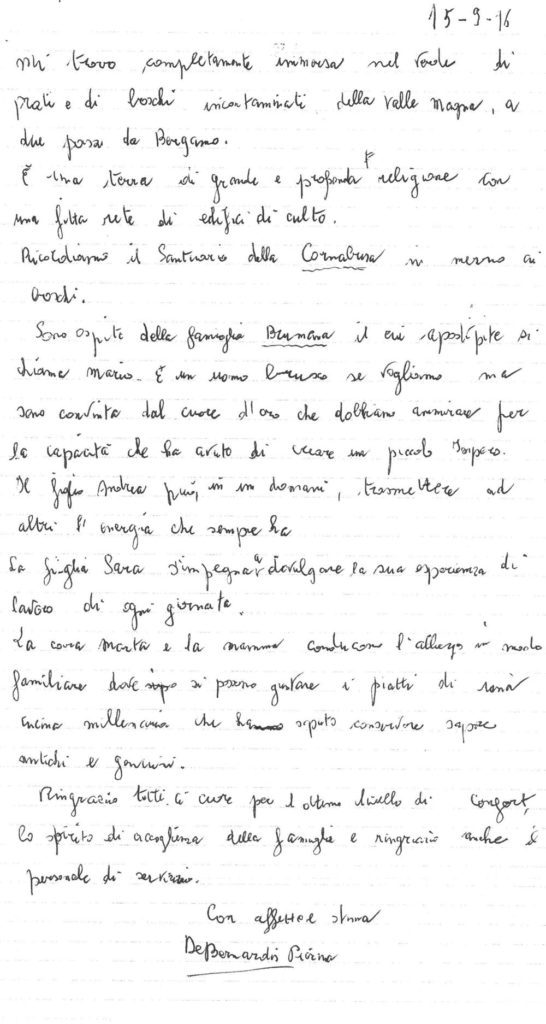 15-9-16
Mi trovo completamente immersa nel verde di
prati e di boschi incontaminati della valle Magna, a
due passi da Bergamo.
È una terra di grande e profonda religione con
una fitta rete di edifici di culto.
Ricordiamo il Santuario della Cornabusa in mezzo ai
boschi.
Sono ospite della famiglia Brumana il cui capostipite si
chiama Mario. È un uomo brusco se vogliamo ma
sono convinta dal cuore d'oro che dobbiamo ammirare per
la capacità che ha avuto di creare un piccolo Impero.
Il figlio Andrea può, in un domani, trasmettere ad
altri l'energia che sempre ha
La figlia Sara s'impegna a divulgare la sua esperienza di
lavoro di ogni giornata.
La cara Marta e la mamma conducono l'albergo in modo
familiare dove si possono gustare i piatti di una
cucina millenaria che ha saputo conservare sapore
antichi e genuini.
Ringrazio tutti per l'ottimo livello di confort,
lo spirito di accoglienza della famiglia e ringrazio anche il
personale di servizio.
Con affetto e stima
De Bernardis Pierina